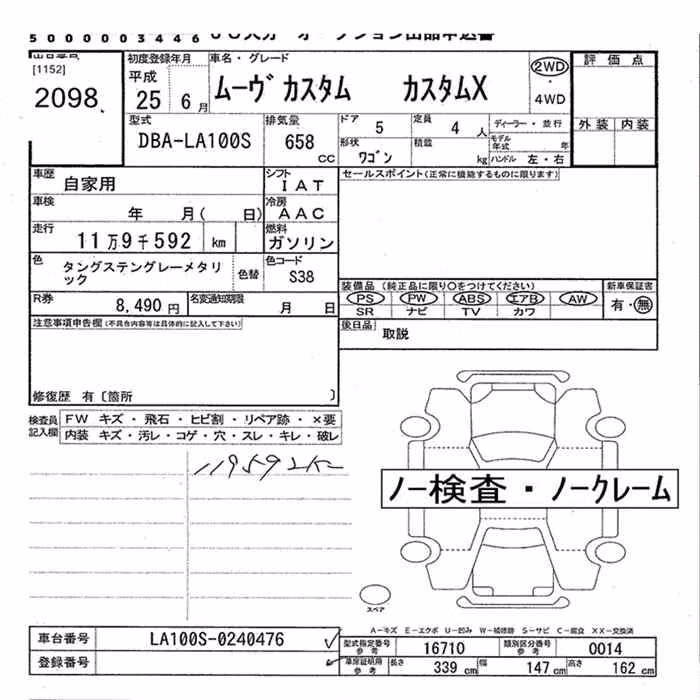 5000003446
[1152]
2098
初度登録年月
平成
25 6 月
車名・グレード
ムーヴ カスタム カスタムX
2WD
・
4WD
評価点
外装 内装
型式
DBA-LA100S
排気量
658
CC
ドア 5
定員 4 人
ディーラー・並行
形状 ワゴン
積載 kg
モデル年式 年
ハンドル 左・右
車歴 自家用
シフト IAT
セールスポイント(正常に機能するものに限ります)
車検 年 月( 日)
冷房 AAC
走行 11万9千592 km
燃料 ガソリン
色 タングステングレーメタリック
色替
色コード S38
装備品(純正品に限り○をつけてください)
新車保証書
PS PW ABS エアB AW
有・無
SR ナビ TV カワ
R券 8,490 円
名変通知期限 月 日
後日品 取説
注意事項申告欄(不具合内容等は具体的に記入して下さい)
修復歴 有〔箇所 〕
検査員記入欄
FW キズ・飛石・ヒビ割・リペア跡・×要
内装 キズ・汚レ・コゲ・穴・スレ・キレ・破レ
119592K
ノー検査・ノークレーム
スペア
A-キズ E-エクボ U-凹み W-補修跡 S-サビ C-腐食 XX-交換済
車台番号 LA100S-0240476
型式指定番号 参考 16710
類別区分番号 参考 0014
登録番号
車庫証明用 参考
長さ 339 cm
幅 147 cm
高さ 162 cm